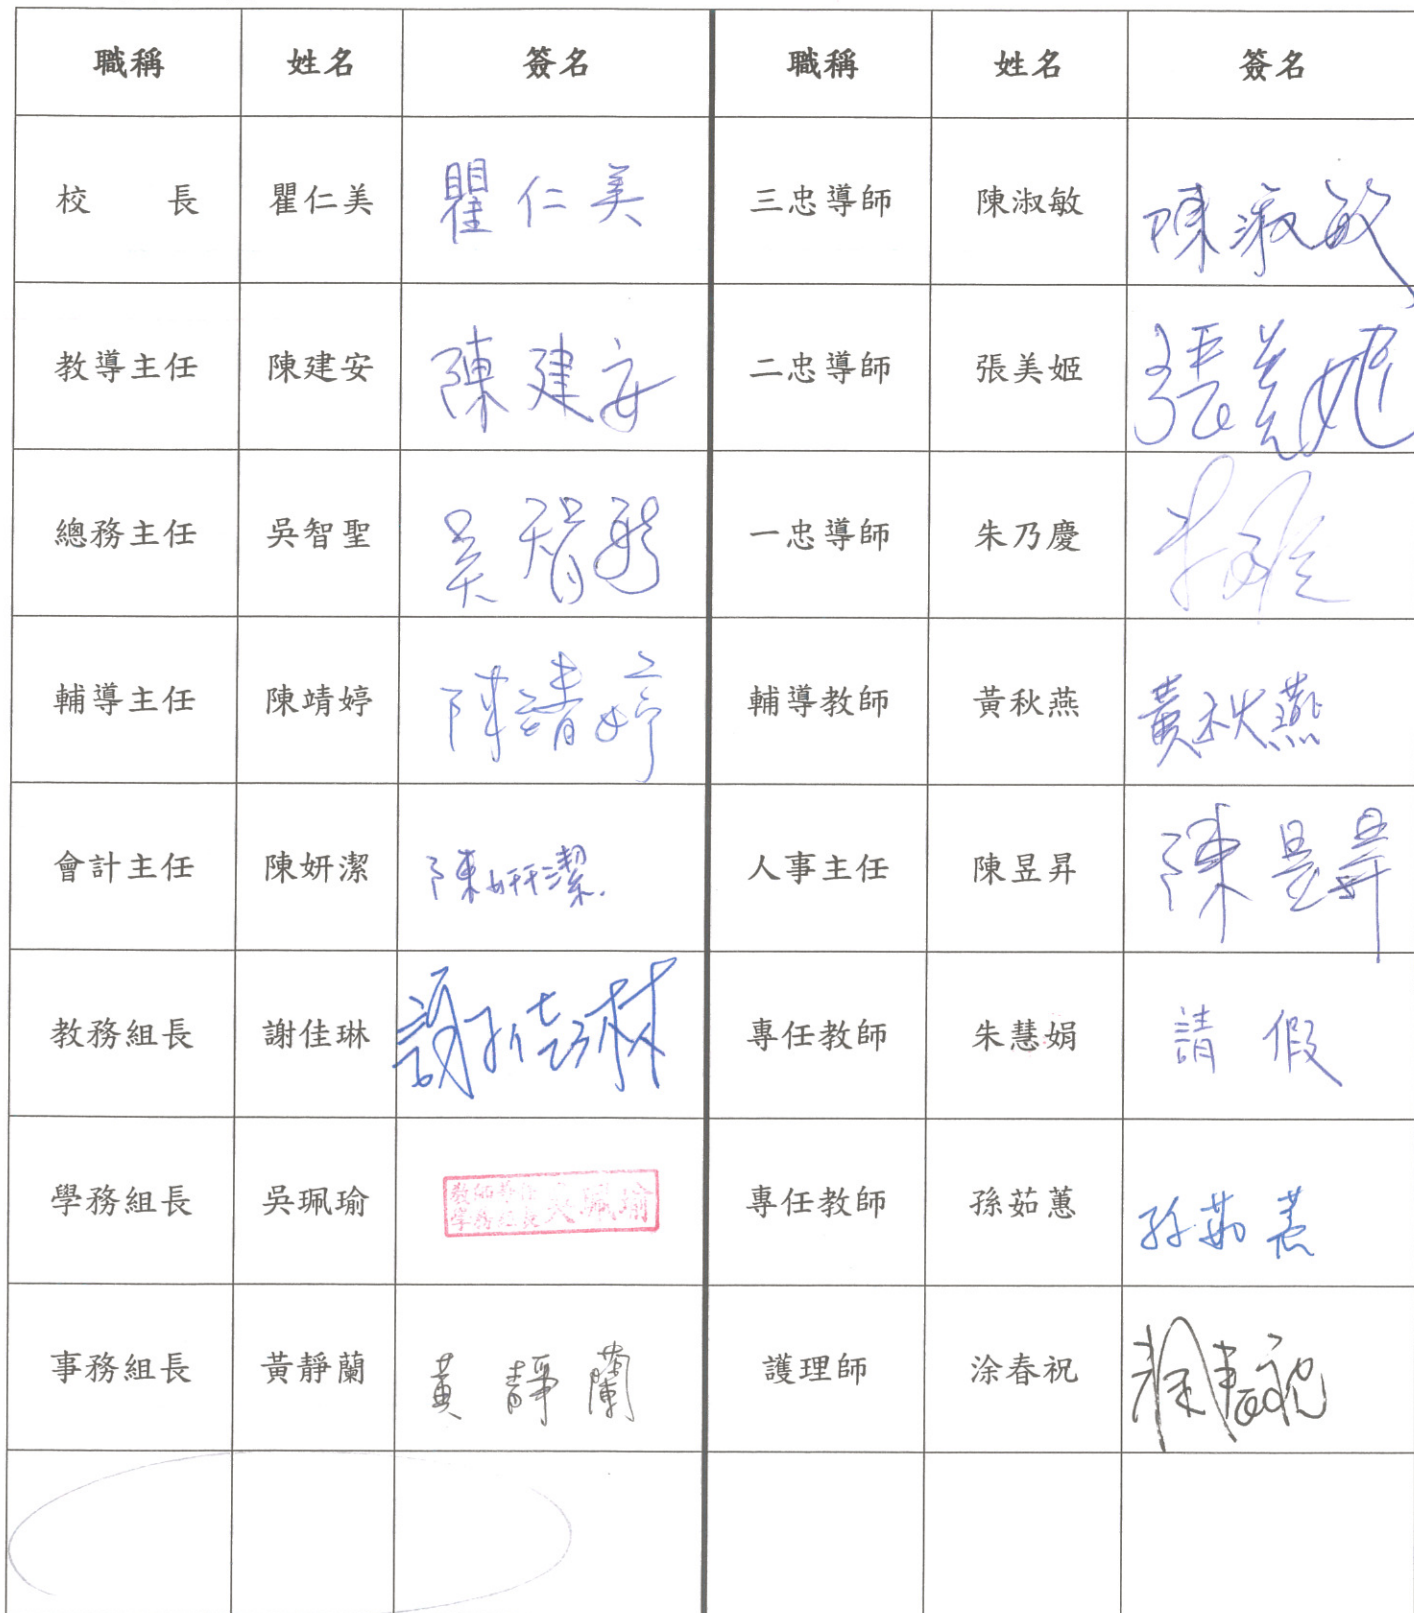 職稱 姓名 簽名 職稱 姓名 簽名
校 長 瞿仁美 瞿仁美 三忠導師 陳淑敏 陳淑敏
教導主任 陳建安 陳建安 二忠導師 張美姬 張美姬
總務主任 吳智聖 吳智聖 一忠導師 朱乃慶
輔導主任 陳靖婷 陳靖婷 輔導教師 黃秋燕 黃秋燕
會計主任 陳妍潔 陳妍潔 人事主任 陳昱昇 陳昱昇
教務組長 謝佳琳 謝佳琳 專任教師 朱慧娟 請假
學務組長 吳珮瑜 學務組長 吳珮瑜 專任教師 孫茹蕙 孫茹蕙
事務組長 黃靜蘭 黃靜蘭 護理師 涂春祝 涂春祝